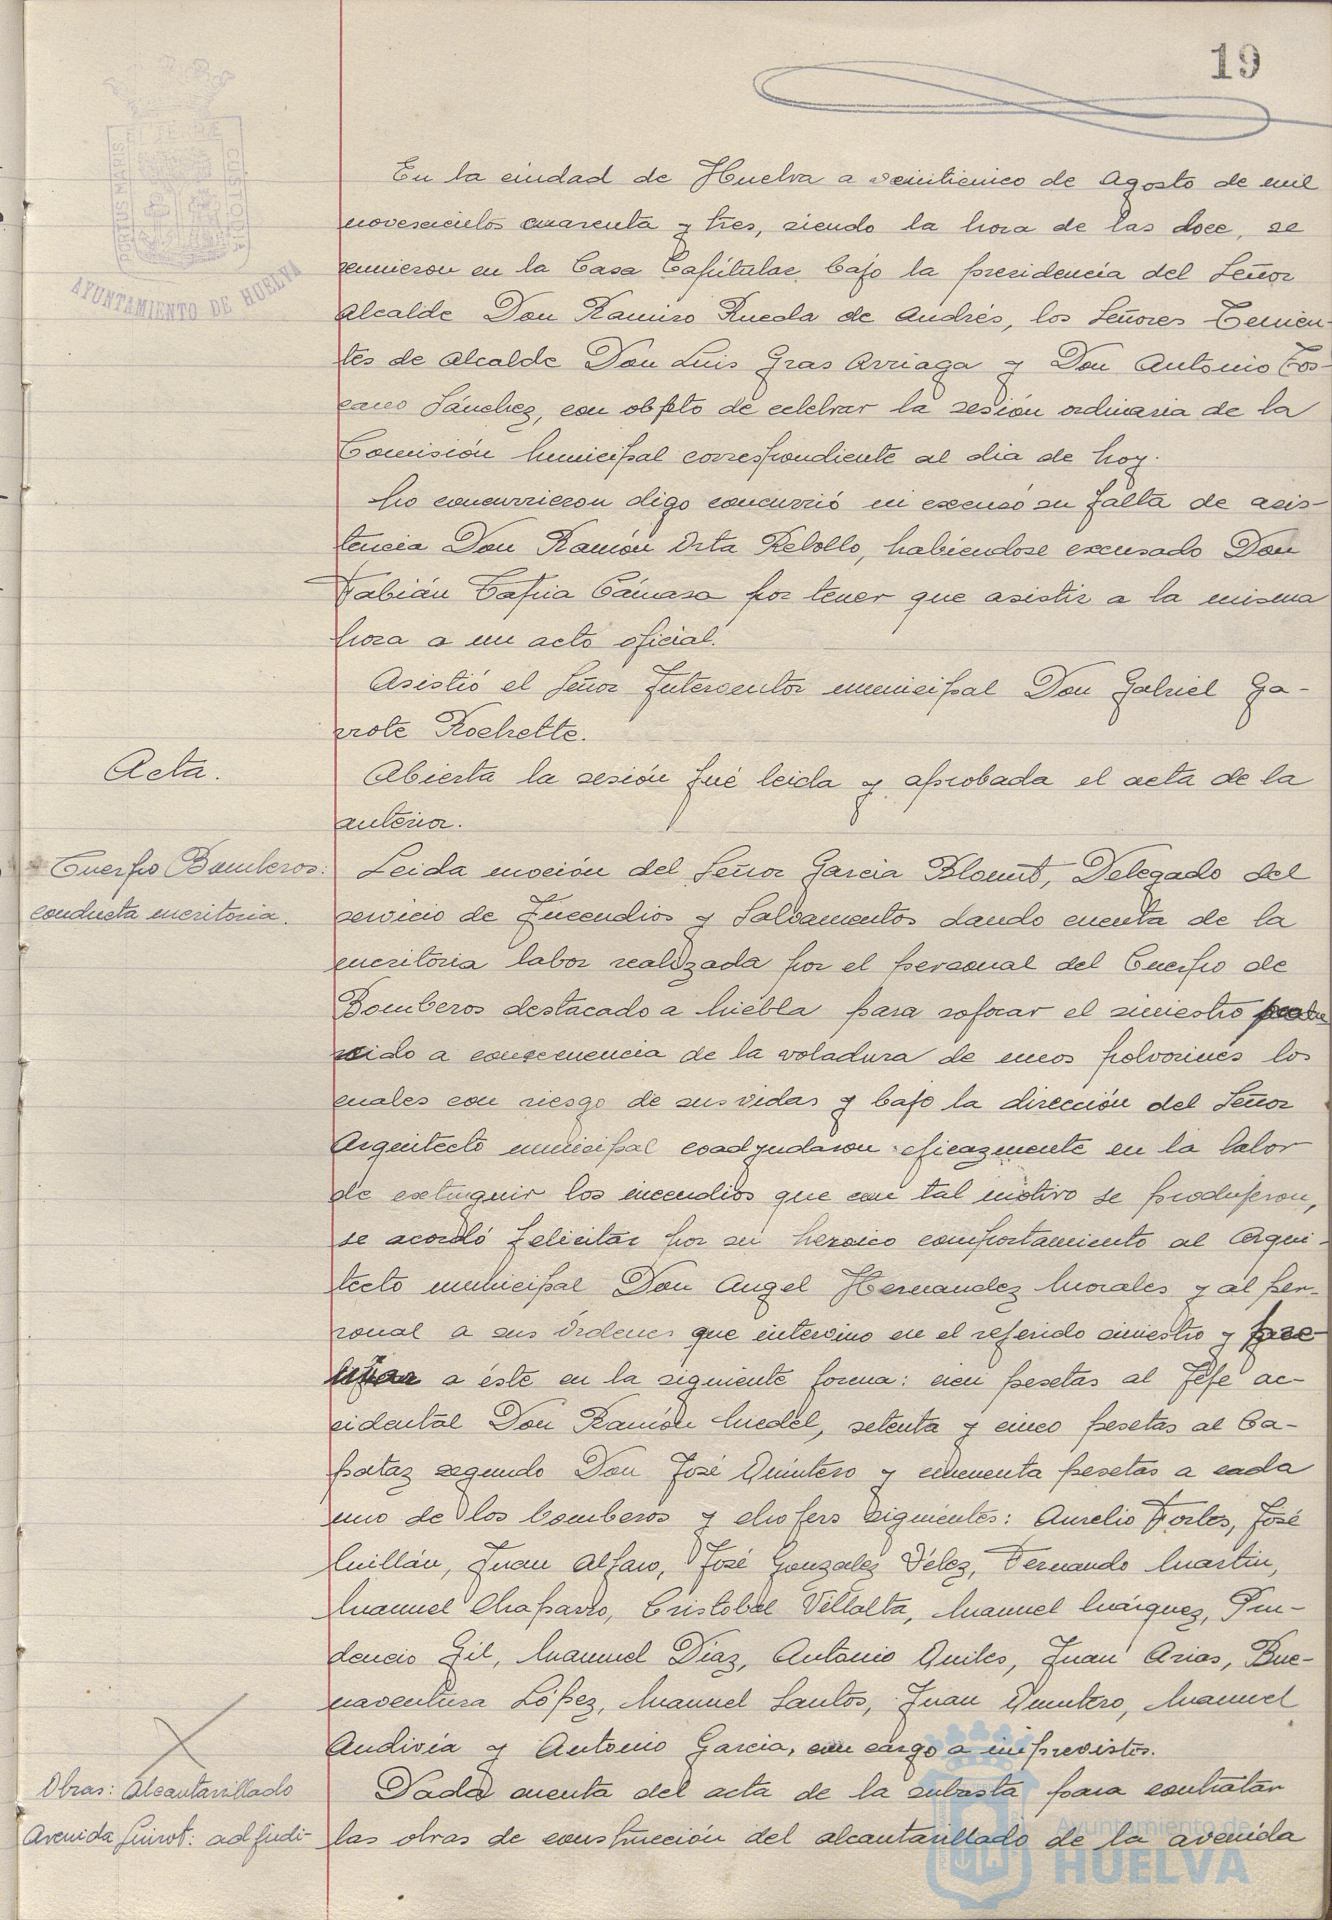 19
PORTUS MARIS ET TERRÆ CUSTODIA
AYUNTAMIENTO DE HUELVA
En la ciudad de Huelva a veinticinco de Agosto de mil
novescientos cuarenta y tres, siendo la hora de las doce, se
reunieron en la Casa Capitular bajo la presidencia del Señor
Alcalde Don Ramiro Rueda de Andrés, los Señores Tenien-
tes de Alcalde Don Luis Gras Arriaga y Don Antonio Tos-
cano Sánchez, con objeto de celebrar la sesión ordinaria de la
Comisión Municipal correspondiente al dia de hoy.
No concurrieron digo concurrió ni excusó su falta de asis-
tencia Don Ramón Orta Rebollo, habiendose excusado Don
Fabián Tapia Cámara por tener que asistir a la misma
hora a un acto oficial.
Asistió el Señor Interventor municipal Don Gabriel Ga-
rrote Rochette.
Acta.
Abierta la sesión fué leida y aprobada el acta de la
anterior.
Cuerpo Bomberos:
conducta meritoria.
Leida moción del Señor Garcia Blount, Delegado del
servicio de Incendios y Salvamentos dando cuenta de la
meritoria labor realizada por el personal del Cuerpo de
Bomberos destacado a Niebla para sofocar el siniestro produ
cido a consecuencia de la voladura de unos polvorines los
cuales con riesgo de sus vidas y bajo la dirección del Señor
Arquitecto municipal coadyudaron eficazmente en la labor
de extinguir los incendios que con tal motivo se produjeron,
se acordó felicitar por su heroico comportamiento al Arqui-
tecto municipal Don Angel Hernandez Morales y al per-
sonal a sus órdenes que intervino en el referido siniestro y pre-
miar a éste en la siguiente forma: cien pesetas al Jefe ac-
cidental Don Ramón Medel, setenta y cinco pesetas al Ca-
pataz segundo Don José Quintero y cincuenta pesetas a cada
uno de los bomberos y chofers siguientes: Aurelio Fortes, José
Millán, Juan Alfaro, José Gonzalez Vélez, Fernando Martin,
Manuel Chaparro, Cristobal Villalta, Manuel Márquez, Pru-
dencio Gil, Manuel Diaz, Antonio Quiles, Juan Arias, Bue-
naventura López, Manuel Santos, Juan Quintero, Manuel
Andivia y Antonio Garcia, con cargo a imprevistos.
Obras: Alcantarillado
Avenida Guirot: adjudi-
Dada cuenta del acta de la subasta para contratar
las obras de construcción del alcantarillado de la avenida
Ayuntamiento de
HUELVA